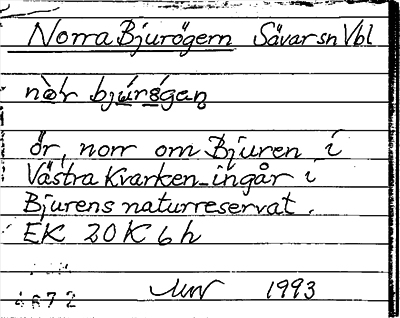 Norra Bjurögern Sävar sn Vbl
nò̀r bjúrö́gaṇ
ör, norr om Bjuren i
Västra Kvarken ingår i
Bjurens naturreservat.
EK 20K 6h
1993
4672